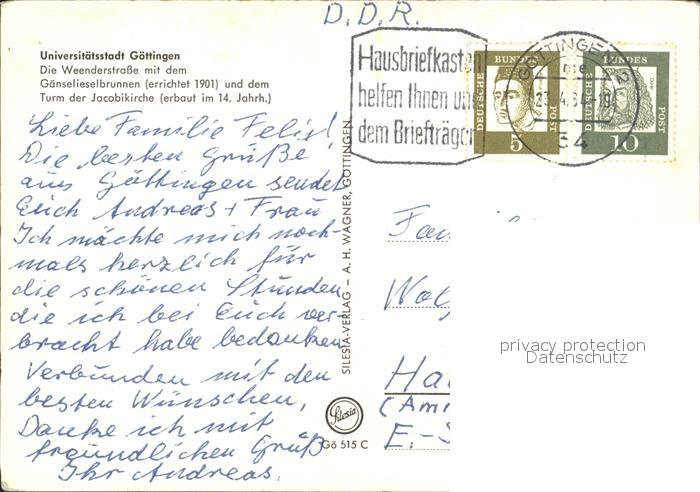 D.D.R.
Universitätsstadt Göttingen
Die Weenderstraße mit dem
Gänselieselbrunnen (errichtet 1901) und dem
Turm der Jacobikirche (erbaut im 14. Jahrh.)
Hausbriefkasten
helfen Ihnen und
dem Briefträger
GÖTTINGEN 2
34
DEUTSCHE BUNDESPOST
5
DEUTSCHE BUNDESPOST
10
Liebe Familie Felix!
Die besten Grüße
aus Göttingen sendet
Euch Andreas + Frau
Ich möchte mich noch-
mals herzlich für
die schönen Stunden,
die ich bei Euch ver-
bracht habe bedanken
Verbunden mit den
besten Wünschen,
Danke ich mit
freundlichen Gruß
Ihr Andreas.
SILESIA-VERLAG – A. H. WAGNER, GÖTTINGEN
Silesia
Gö 515 C
Fam
Wol
Ha
(Am
E.-S
privacy protection
Datenschutz